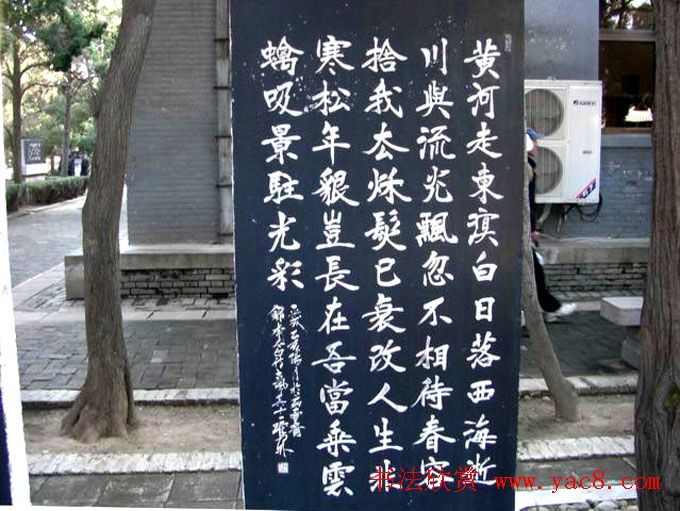 黃河走東溟白日落西海逝
川與流光飄忽不相待春容
捨我去秌髮已衰改人生非
寒松年貌豈長在吾當乘雲
螭吸景駐光彩
GREE
书法欣赏 www.yac8.com